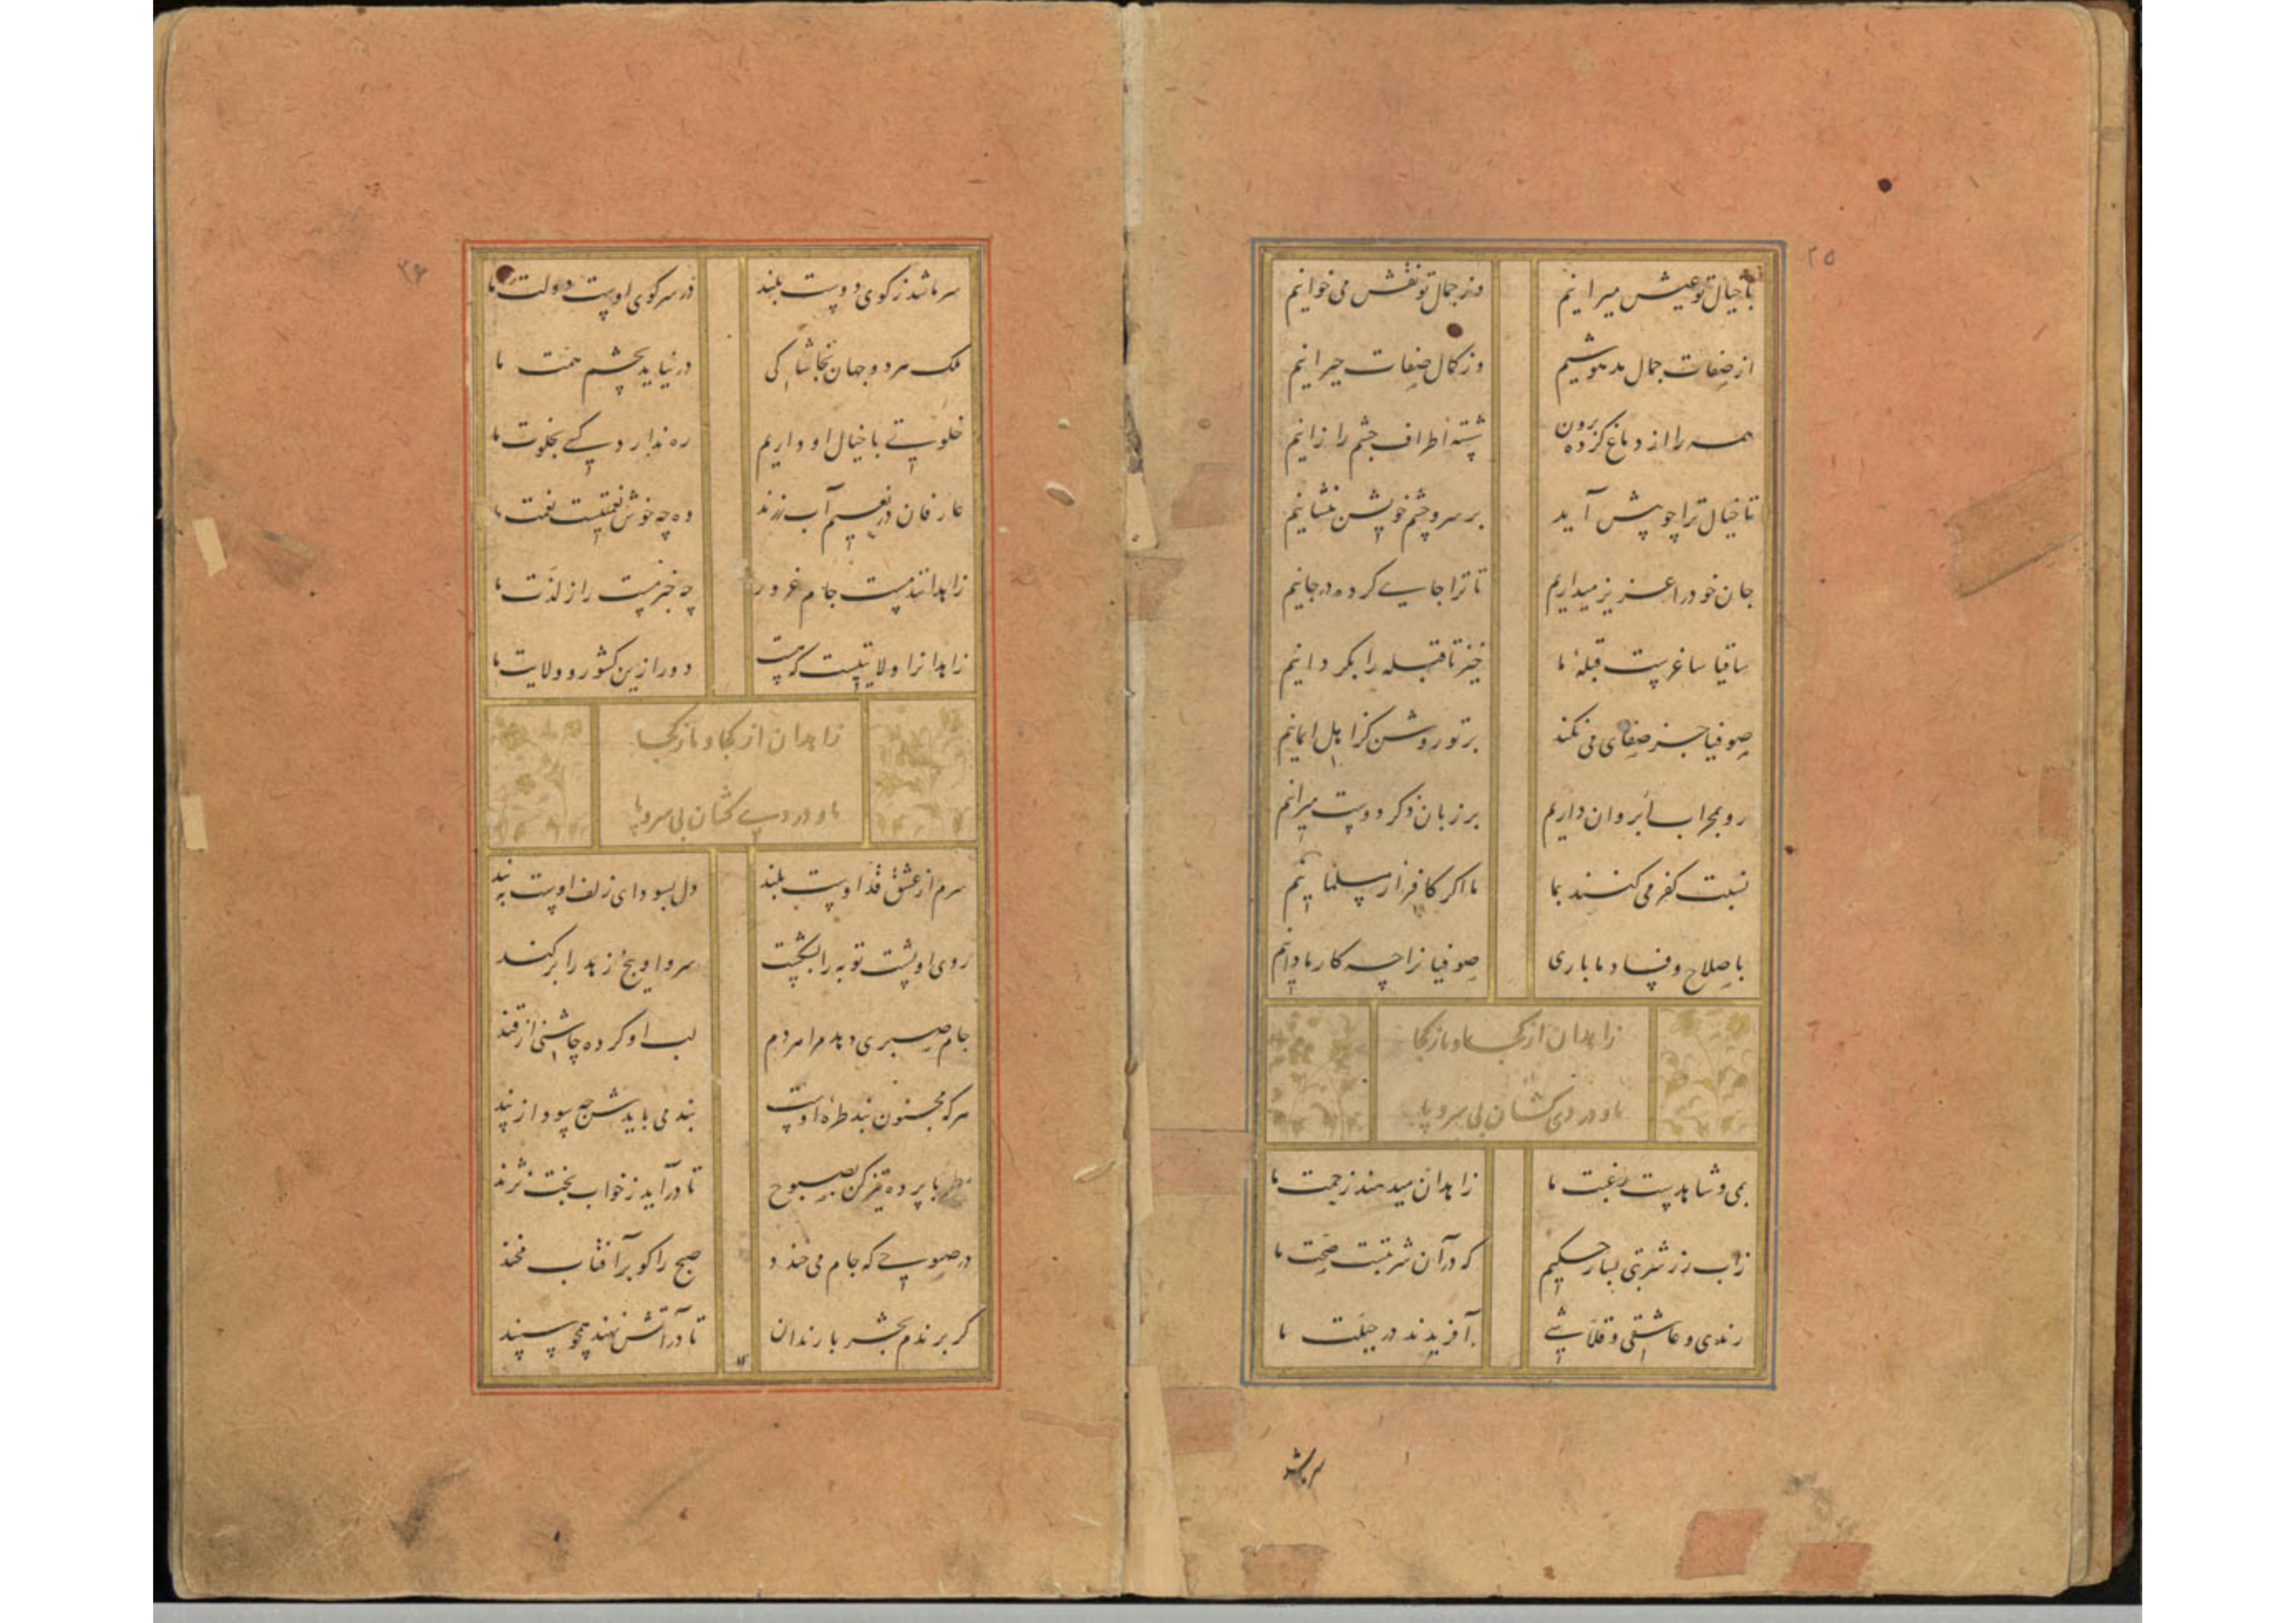 ۲۵
با خیال تو عیش میرانیم وز جمال تو نقش می خوانیم
از صفات جمال مدهوشیم وز کمال صفات حیرانیم
همه را از دماغ کرده برون شسته اطراف چشم را زانیم
تا خیال ترا چو پیش آید بر سر و چشم خویش بنشانیم
جان خود را عزیز میداریم تا ترا جای کرده در جانیم
ساقیا ساغرست قبلهٔ ما خیز تا قبله را بگردانیم
صوفیا جز صفای می نکند بر تو روشن کز اهل ایمانیم
رو بمحراب ابروان داریم بر زبان ذکر دوست میرانیم
نسبت کفر می کنند بما ما اگر کافر ار مسلمانیم
با صلاح و فساد ما باری صوفیانرا چه کار ما دانیم
زاهدان از کجا و ما ز کجا
ما و دردی کشان بی سر و پا
بمی و شاهدست رغبت ما زاهدان میدهند زحمت ما
زآب رز شربتی بساز حکیم که در آن شربتست صحت ما
رندی و عاشقی و قلاشی آفریدند در جبلت ما
سر ما شد
۲۶
سر ما شد ز کوی دوست بلند در سر کوی اوست دولت ما
ملک هر دو جهان بخاشاکی در نیاید بچشم همت ما
خلوتی با خیال او داریم ره ندارد کسی بخلوت ما
عارفان در نعیم آب رزند وه چه خوش نعمتیست نعمت ما
زاهدانند مست جام غرور چه خبر مست را ز لذت ما
زاهدانرا ولایتیست که هست دور ازین کشور و ولایت ما
زاهدان از کجا و ما ز کجا
ما و دردی کشان بی سر و پا
سرم از عشق قد اوست بلند دل بسودای زلف اوست به بند
روی او پشت توبه را بشکست سرو او بیخ زهد را برکند
جام صبری دهد مرا هر دم لب او کرده چاشنی از قند
هر که مجنون بند طرهٔ اوست بند می بایدش چه سود از پند
مطربا پرده تیز کن بصبوح تا در آید ز خواب بخت نژند
در صبوحی که جام می خندد صبح را کو بر آفتاب مخند
گر برندم بحشر با رندان تا در آتش نهند همچو سپند